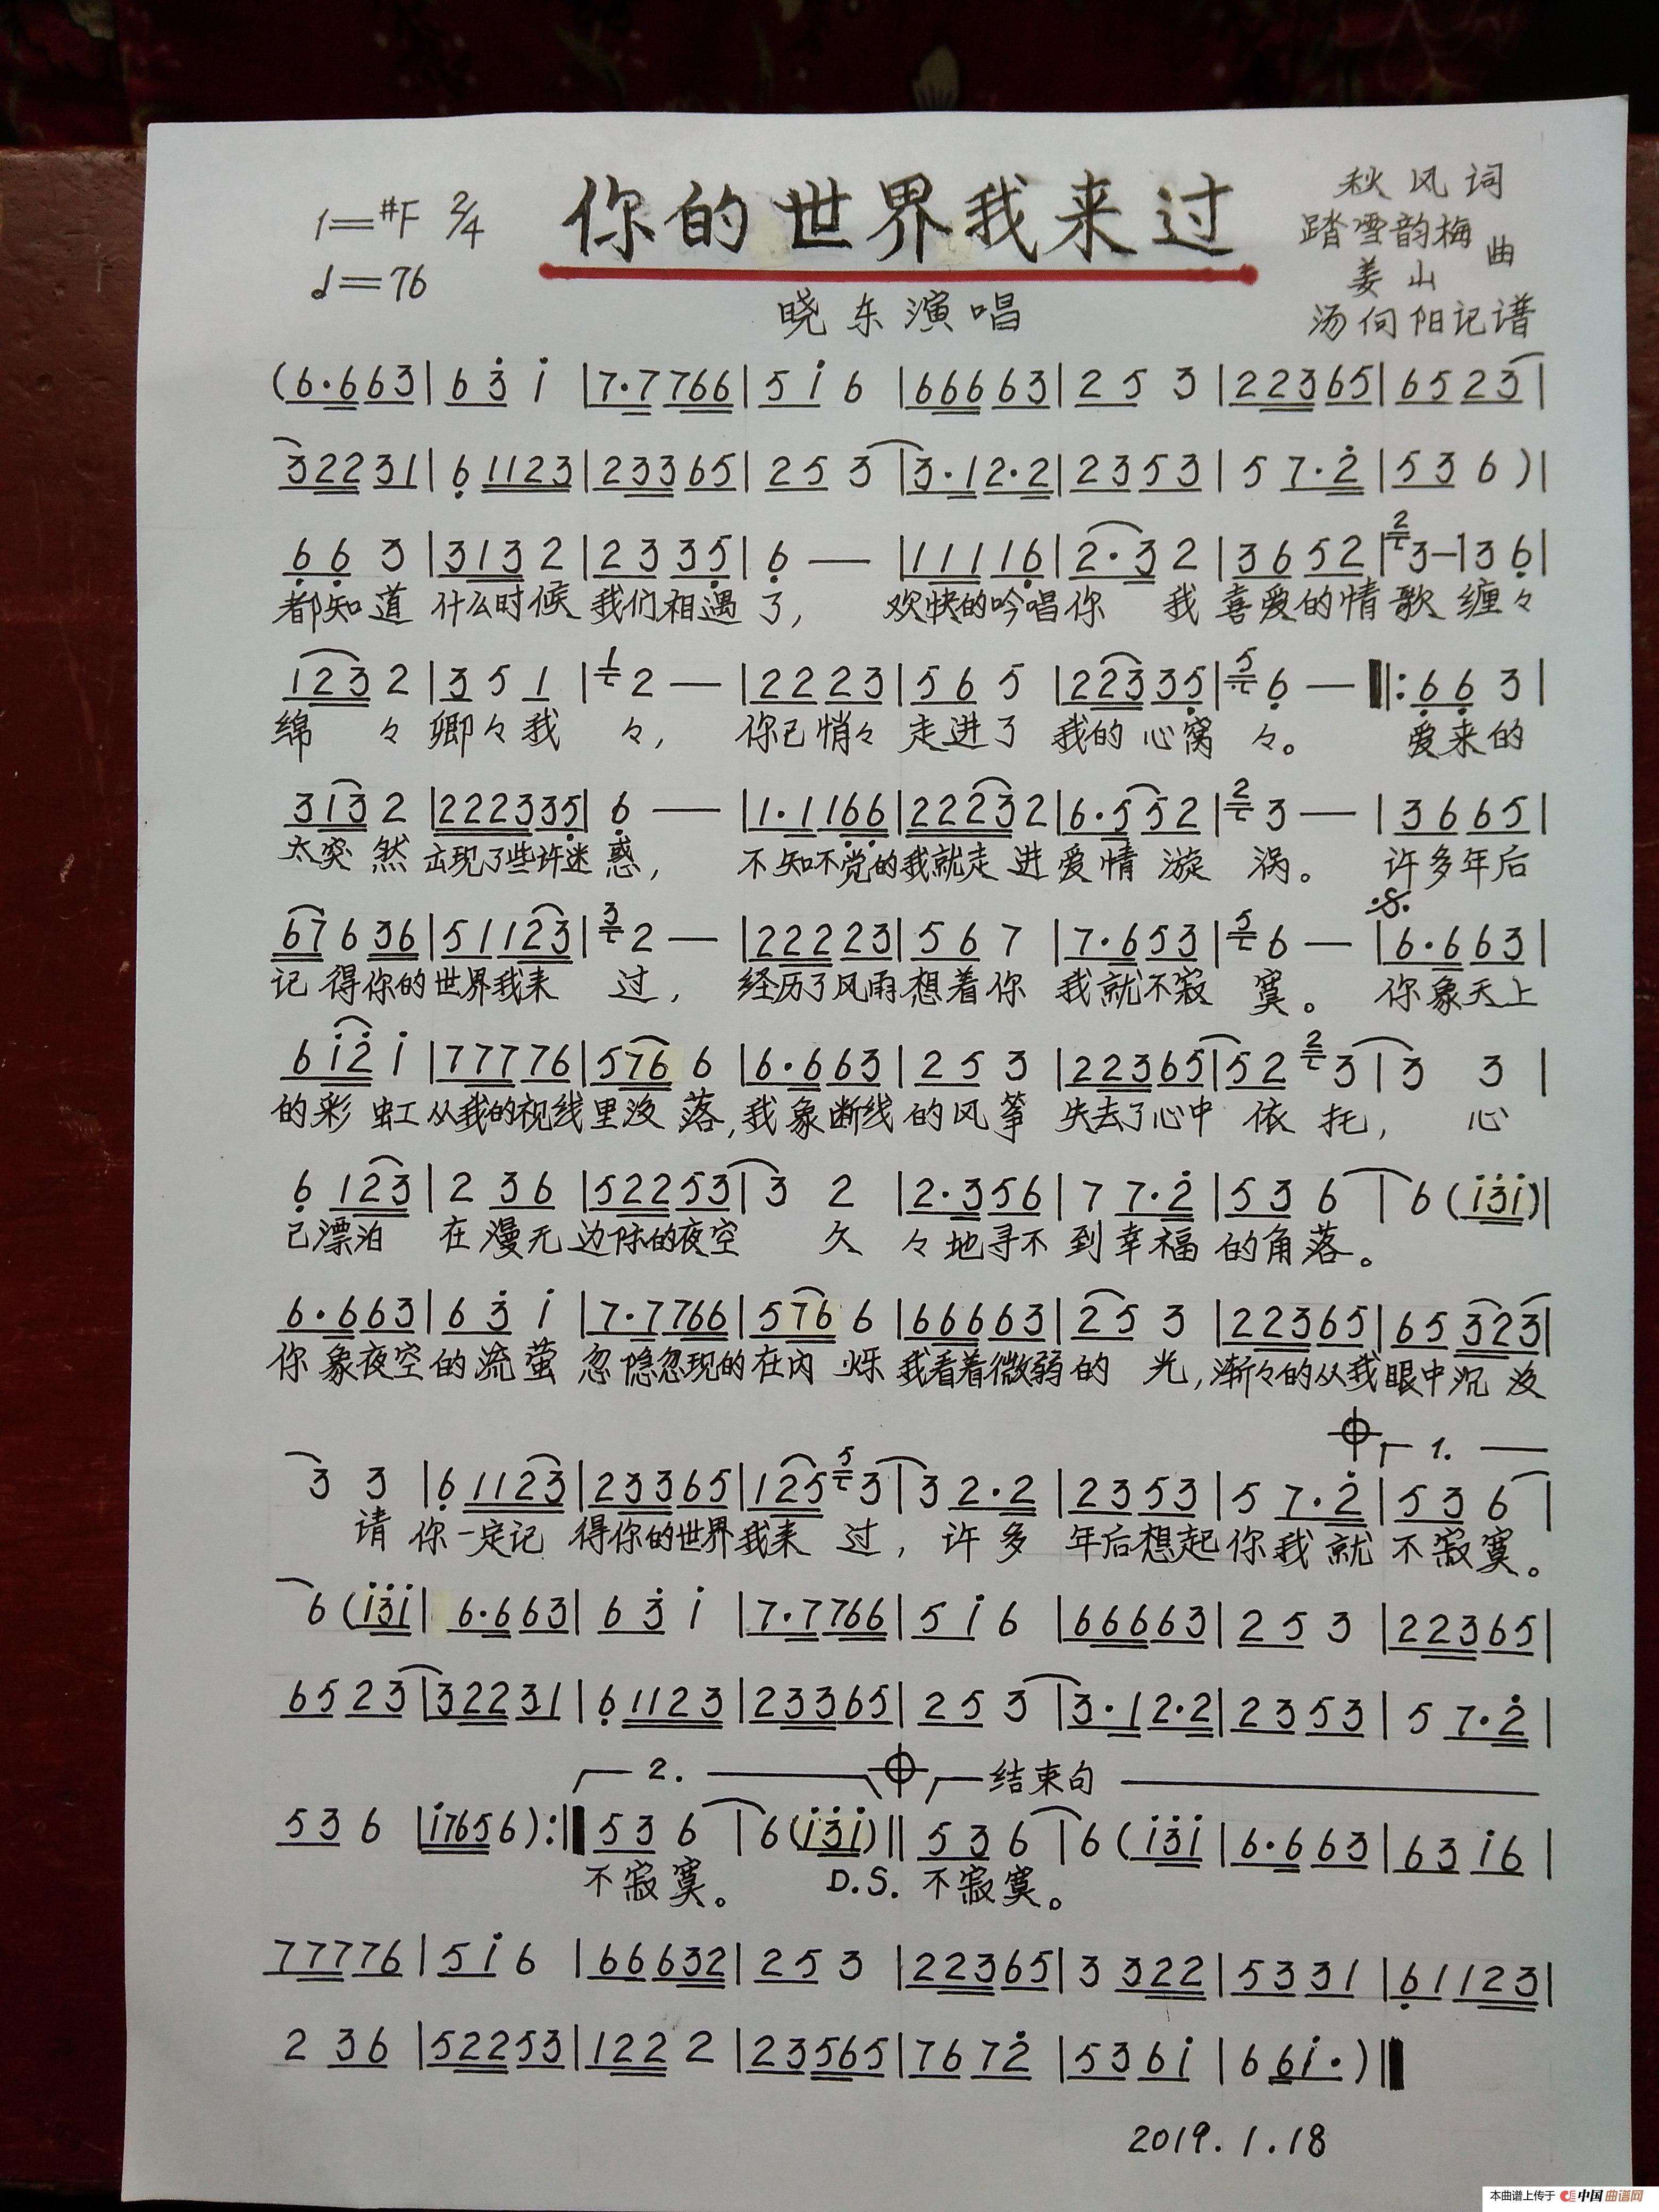 1=#F 2/4
♩=76
你的世界我来过
晓东演唱
秋风词
踏雪韵梅
姜山 曲
汤向阳记谱
(6·663|63̇i̇|7·7766|5i̇6|66663|253|22365|6523|
32231|6̣1123|23365|253|3·12·2|2353|57·2̇|536)|
6̣6̣3|3132|2335̣|6̣—|11116̣|2·32|3652|²3—|36̣|
都知道 什么时候 我们相遇 了, 欢快的吟唱你 我 喜爱的情歌 缠々
1232|351|¹2—|2223|565|22335̣|⁵6̣—‖:6̣6̣3|
绵 々 卿々我 々, 你已悄々 走进了 我的心窝 々。 爱来的
3132|222335̣|6̣—|1·116̣6̣|22232|6·552|²3—|3665|
太突 然 出现了些许迷 惑, 不知不觉的我就走 进 爱情 漩 涡。 许多年后
67636|51123|³2—|22223|567|7·653|⁵6—|6·663|
记 得你的世界我来 过, 经历了风雨想着你 我就不寂 寞。 你象天上
6i̇2̇i̇|77776|5766|6·663|253|22365|52²3|33|
的彩 虹从我的视线里没 落,我象断线 的风筝 失去了心中 依 托, 心
6̣123|236|52253|32|2·356|77·2̇|536|6(i̇3̇i̇)|
已漂泊 在漫无边际的夜空 久 々地寻不 到幸福 的角落。
6·663|63̇i̇|7·7766|5766|66663|253|22365|65323|
你象夜空的流萤 忽隐忽现的在闪 烁 我看着微弱的 光,渐々的从我眼中沉 没
1.
33|6̣1123|23365|125⁵3|32·2|2353|57·2̇|536|
请 你一定记 得你的世界我来 过, 许多 年后想起你我就 不寂寞。
6(i̇3̇i̇|6·663|63̇i̇|7·7766|5i̇6|666663|253|22365|
6523|32231|6̣1123|23365|253|3·12·2|2353|57·2̇|
2. 结束句
536|i̇7656):‖536|6(i̇3̇i̇)‖536|6(i̇3̇i̇|6·663|63i̇6|
不寂寞。 D.S. 不寂寞。
77776|5i̇6|66632|253|22365|3322|5331|6̣1123|
236|52253|1222|23565|7672̇|536i̇|66i̇·)‖
2019.1.18
本曲谱上传于 中国曲谱网